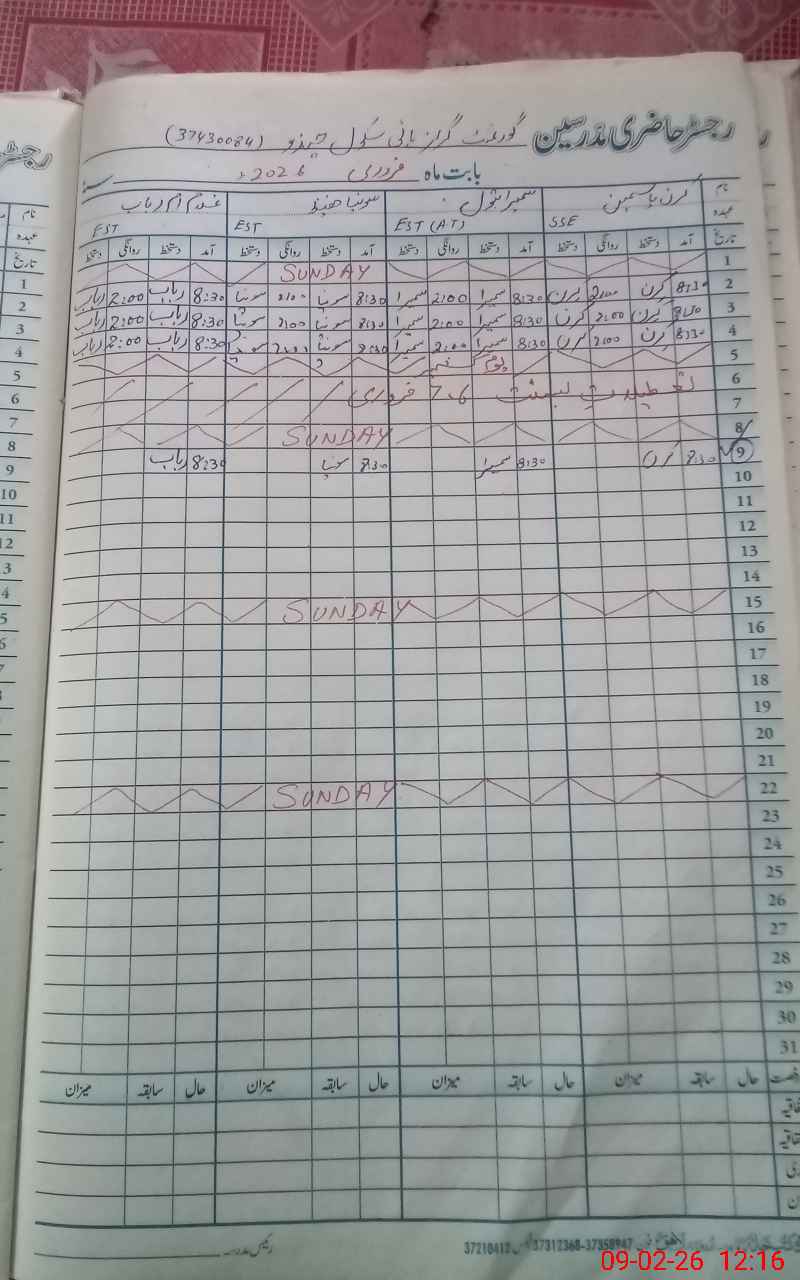 رجسٹر حاضری مدرسین گورنمنٹ گرلز ہائی سکول (37430084)
بابت ماہ فروری 2026ء
نام کرن یاسمین سمیرا بتول سونیا حفیظ غلام ام رباب
عہدہ SSE EST (AT) EST EST
تاریخ آمد دستخط روانگی دستخط آمد دستخط روانگی دستخط آمد دستخط روانگی دستخط آمد دستخط روانگی دستخط
1 SUNDAY
2 8:30 کرن 2:00 کرن 8:30 سمیرا 2:00 سمیرا 8:30 سونیا 2:00 سونیا 8:30 رباب 2:00 رباب
3 8:30 کرن 2:00 کرن 8:30 سمیرا 2:00 سمیرا 8:30 سونیا 2:00 سونیا 8:30 رباب 2:00 رباب
4 8:30 کرن 2:00 کرن 8:30 سمیرا 2:00 سمیرا 8:30 سونیا 2:00 سونیا 8:30 رباب 2:00 رباب
5 یوم کشمیر
6 تعطیلات بسنت 6، 7 فروری
7
8 SUNDAY
9 8:30 کرن 8:30 سمیرا 8:30 سونیا 8:30 رباب
10
11
12
13
14
15 SUNDAY
16
17
18
19
20
21
22 SUNDAY
23
24
25
26
27
28
29
30
31
حال سابقہ میزان حال سابقہ میزان حال سابقہ میزان حال سابقہ میزان
رئیس مدرسہ
37312368-37358947
37210412
09-02-26 12:16